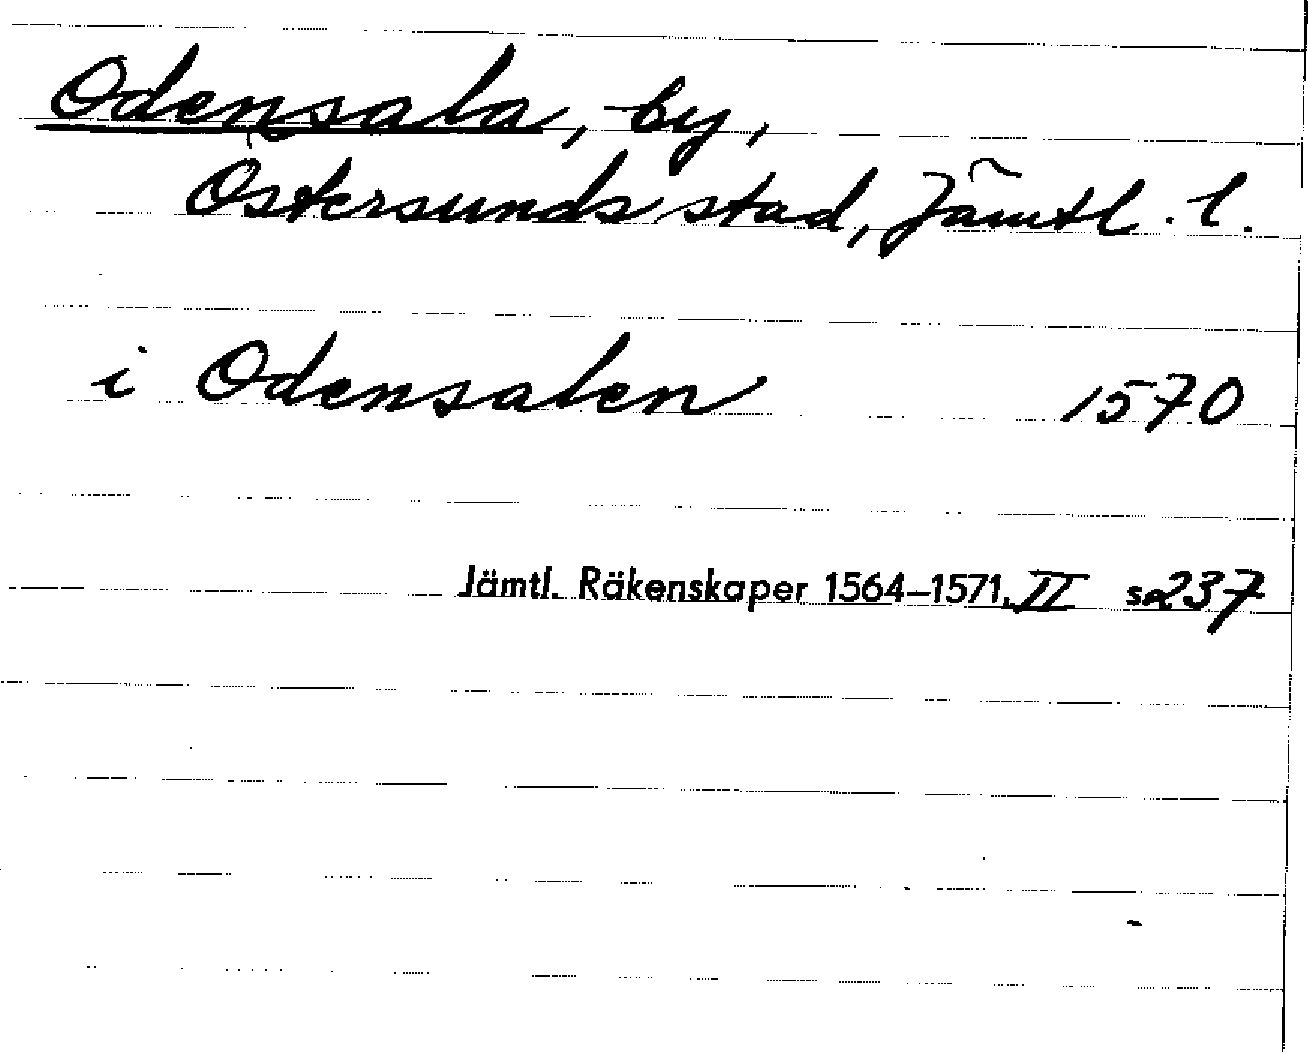 Odensala, by,
Östersunds stad, Jämtl. l.
i Odensalen 1570
Jämtl. Räkenskaper 1564–1571, II s 237